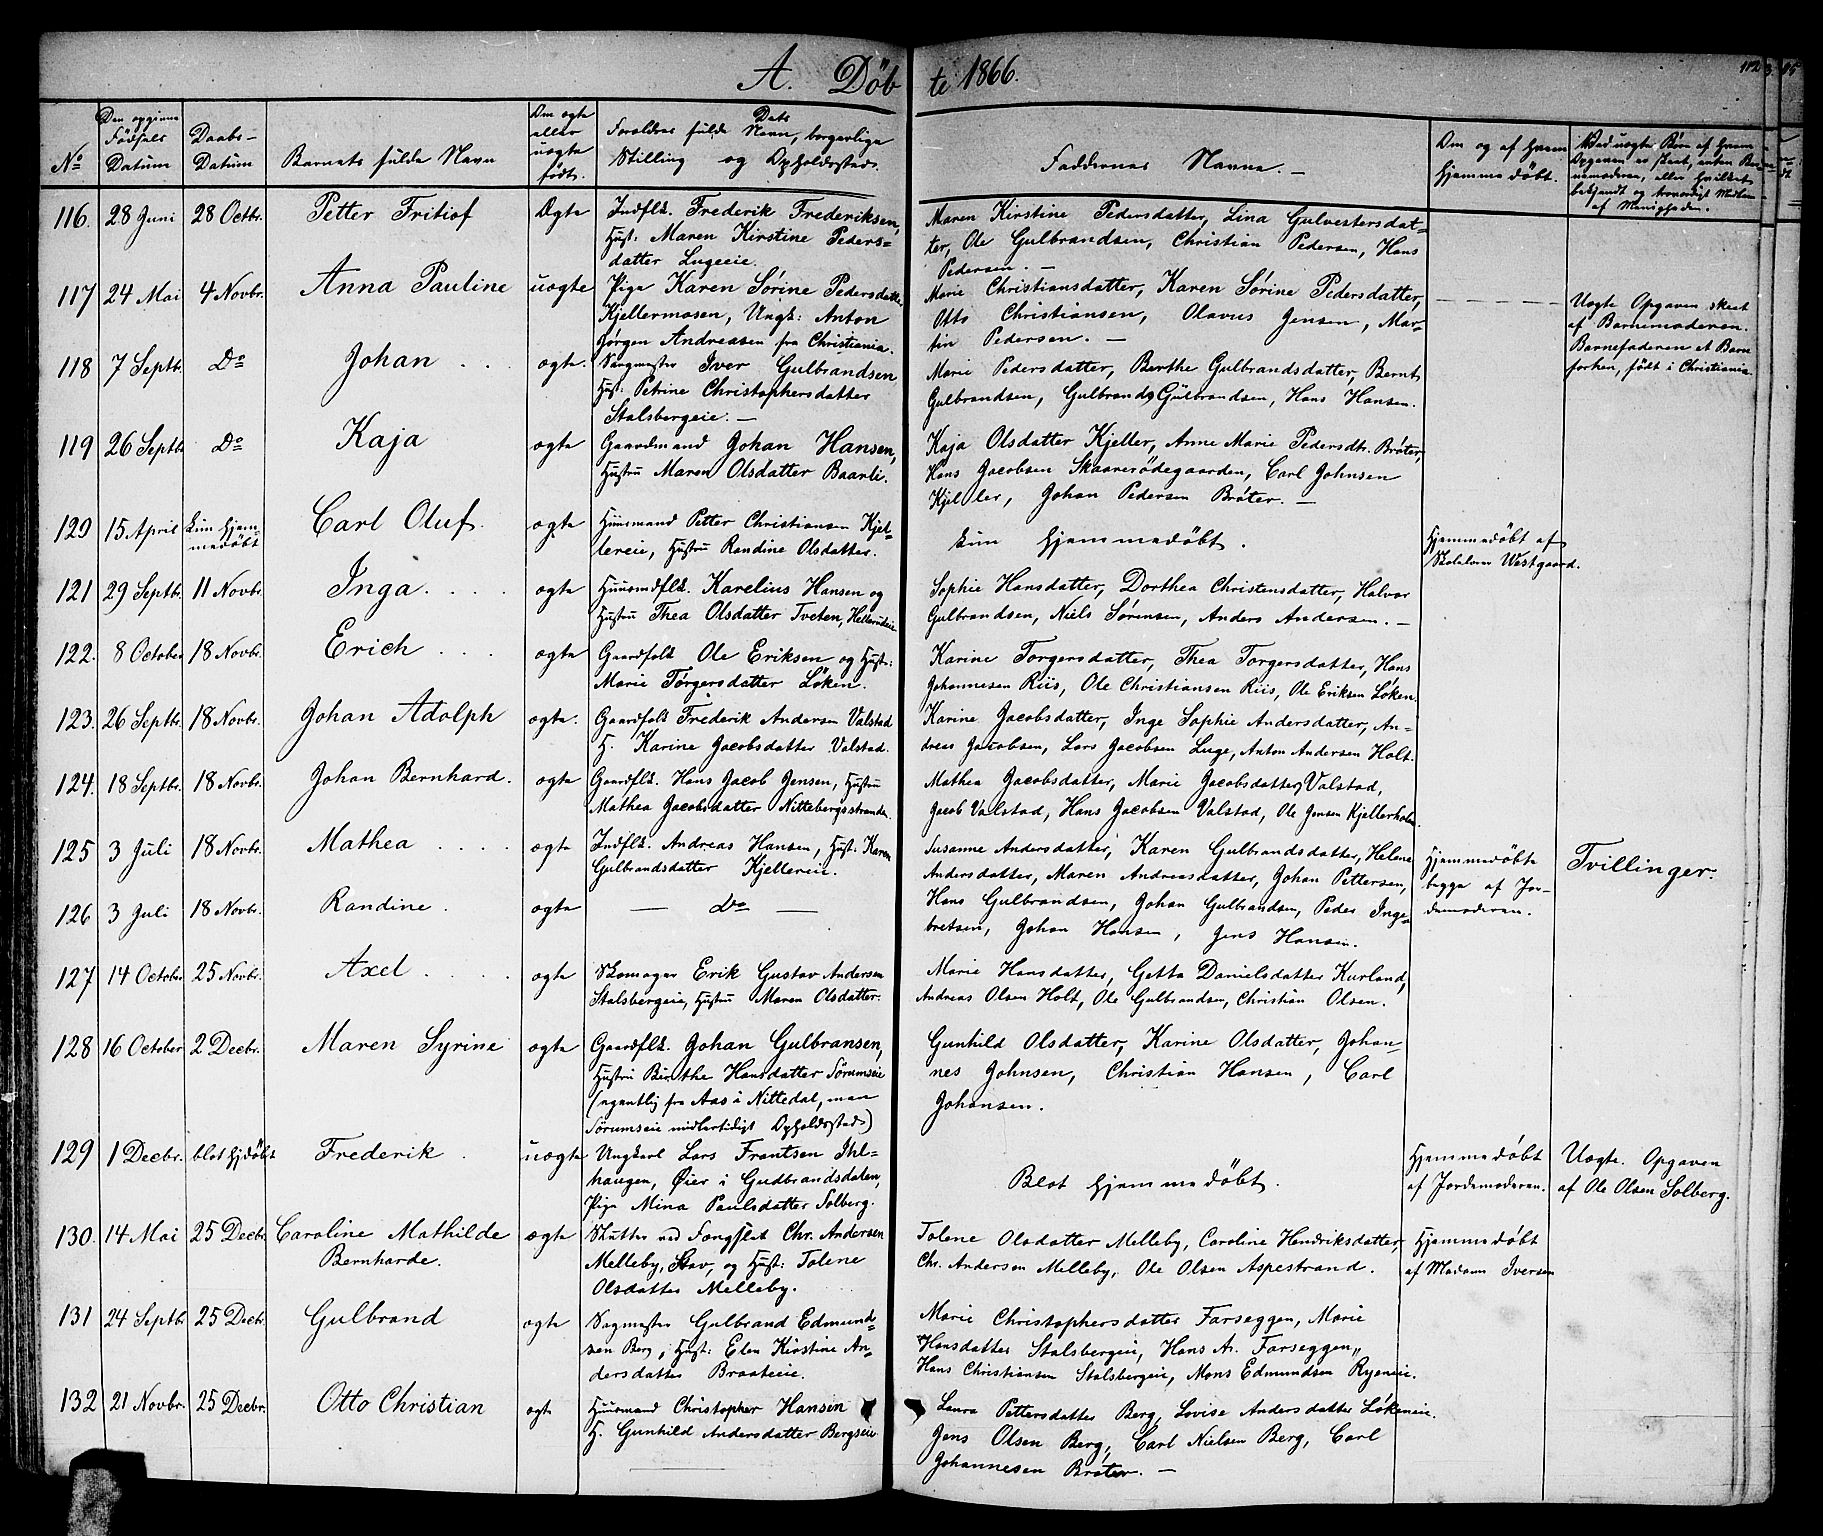 A. Döbte 1866.
112
No
Den opgivne Fødsels Datum
Daabs-Datum
Barnets fulde Navn
Om ægte eller uægte født.
Forældres fulde Navn, Dato borgerlige Stilling og Opholdssted.
Faddernes Navne. —
Om og af hvem hjemmedöbt.
Ved uægte Børn af hvem Opgaven er skeet, enten Barnemoderen, eller hvilket bekjendt og troværdigt Medlem af Menigheden.
116. 28 Juni 28 Octbr. Petter Fritiof Ægte Indflk. Frederik Frederiksen, Maren Kirstine Pedersdatter, Lina Gulvestersdat=
Hust: Maren Kirstine Peders= ter, Ole Gulbrandsen, Christian Pedersen, Hans
datter Lugeeie. Pedersen. —
117 24 Mai 4 Novbr. Anna Pauline uægte Pige Karen Sörine Pedersdatter Marie Christiansdatter, Karen Sörine Pedersdatter, Uægte Opgaven skeet
Kjellermosen, Ungk: Anton Otto Christiansen, Olavus Jensen, Mar= af Barnemoderen.
Jörgen Andreasen fra Christiania. tin Pedersen. — Barnefaderen et Barn
118 7 Septbr. Do Johan . . ægte. Sagmester Iver Gulbrandsen Marie Pedersdatter, Berthe Gulbrandsdatter, Bernt forhen, født i Christiania.
Hust: Petrine Christophersdatter Gulbrandsen, Gulbrand Gulbrandsen, Hans Hansen.
Stalsbergeie. —
119 26 Septbr. Do Kaja ægte Gaardmand Johan Hansen, Kaja Olsdatter Kjeller, Anne Marie Pedersdtr. Bröter,
Hustru Maren Olsdatter Baarli. Hans Jacobsen Skaarerödegaarden, Carl Johnsen
Kjeller, Johan Pedersen Bröter. —
120 15 April kun hjem= medöbt Carl Oluf. ægte Huusmand Petter Christiansen Kjel= kun hjemmedöbt. Hjemmedöbt af
lereie, Hustru Randine Olsdatter. Skolelærer Westgaard.
121 29 Septbr. 11 Novbr. Inga . . . . ægte Huusmdflk. Karelius Hansen og Sophie Hansdatter, Dorthea Christensdatter, Halvor
Hustru Thea Olsdatter Tveten, Hellerudeie Gulbrandsen, Niels Sörensen, Anders Andersen. —
122. 8 October 18 Novbr. Erich . . . ægte Gaardfolk Ole Eriksen og Hust: Karine Torgersdatter, Thea Torgersdatter, Hans
Marie Torgersdatter Löken. Johannesen Riis, Ole Christiansen Riis, Ole Eriksen Löken.
123. 26 Septbr. 18 Novbr. Johan Adolph ægte. Gaardfolk Frederik Andersen Valstad Karine Jacobsdatter, Inge Sophie Andersdatter, An=
H. Karine Jacobsdatter Valstad. dreas Jacobsen, Lars Jacobsen Luge, Anton Andersen Holt.
124. 18 Septbr. 18 Novbr. Johan Bernhard. ægte Gaardflk. Hans Jacob Jensen, Hustru Mathea Jacobsdatter, Marie Jacobsdatter Valstad,
Mathea Jacobsdatter Nittebergsstranden. Jacob Valstad, Hans Jacobsen Valstad, Ole Jensen Kjellerholen.
125 3 Juli 18 Novbr. Mathea . . . . ægte Indflk. Andreas Hansen, Hust: Karen Susanne Andersdatter, Karen Gulbrandsdatter, Helene Hjemmedöbte Tvillinger.
Gulbrandsdatter Kjellereie. Andersdatter, Maren Andreasdatter, Johan Pettersen, begge af Jor=
126 3 Juli 18 Novbr. Randine. ægte — Do — Hans Gulbrandsen, Johan Gulbrandsen, Peder Inge= demoderen.
bretsen, Johan Hansen, Jens Hansen.
127 14 October 25 Novbr. Axel . . . . ægte Skomager Erik Gustav Andersen Marie Hansdatter, Getta Danielsdatter Kurland,
Stalsbergeie, Hustru Maren Olsdatter. Andreas Olsen Holt, Ole Gulbrandsen, Christian Olsen.
128 16 October 2 Decbr. Maren Syrine ægte Gaardflk. Johan Gulbransen, Gunhild Olsdatter, Karine Olsdatter, Johan=
Hustru Berthe Hansdatter Sörumseie nes Johnsen, Christian Hansen, Carl
(egentlig fra Aas i Nittedal, men Johansen.
Sörumseie midlertidigt Opholdssted)
129 1 Decbr. blot hjdöbt Frederik . uægte Ungkarl Lars Frantsen Ihl= Blot hjemmedöbt. Hjemmedöbt Uægte. Opgaven
haugen, Öier i Gudbrandsdalen, af Jordemoderen. af Ole Olsen Solberg.
Pige Mina Paulsdatter Solberg.
130. 14 Mai 25 Decbr. Caroline Mathilde ægte Slutter ved Fængslet Chr. Andersen Tolene Olsdatter Melleby, Caroline Hendriksdatter, Hjemmedöbt
Bernharde. Melleby, Stav, og Hust: Tolene Chr. Andersen Melleby, Ole Olsen Aspestrand. af Madam Iversen
Olsdatter Melleby.
131 24 Septbr 25 Decbr. Gulbrand ægte Sagmester Gulbrand Edmund= Marie Christophersdatter Farseggen, Marie
sen Berg, Hust: Elen Kirstine An= Hansdatter Stalsbergeie, Hans A. Farseggen,
dersdatter Braateeie. Hans Christiansen Stalsbergeie, Mons Edmundsen Ryeneie.
132 21 Novbr. 25 Decbr. Otto Christian ægt Huusmand Christopher Hansen Laura Pettersdatter Berg, Lovise Andersdatter Lökeneie.
H. Gunhild Andersdatter Bergseie Jens Olsen Berg, Carl Nielsen Berg, Carl
Johannesen Bröter. —